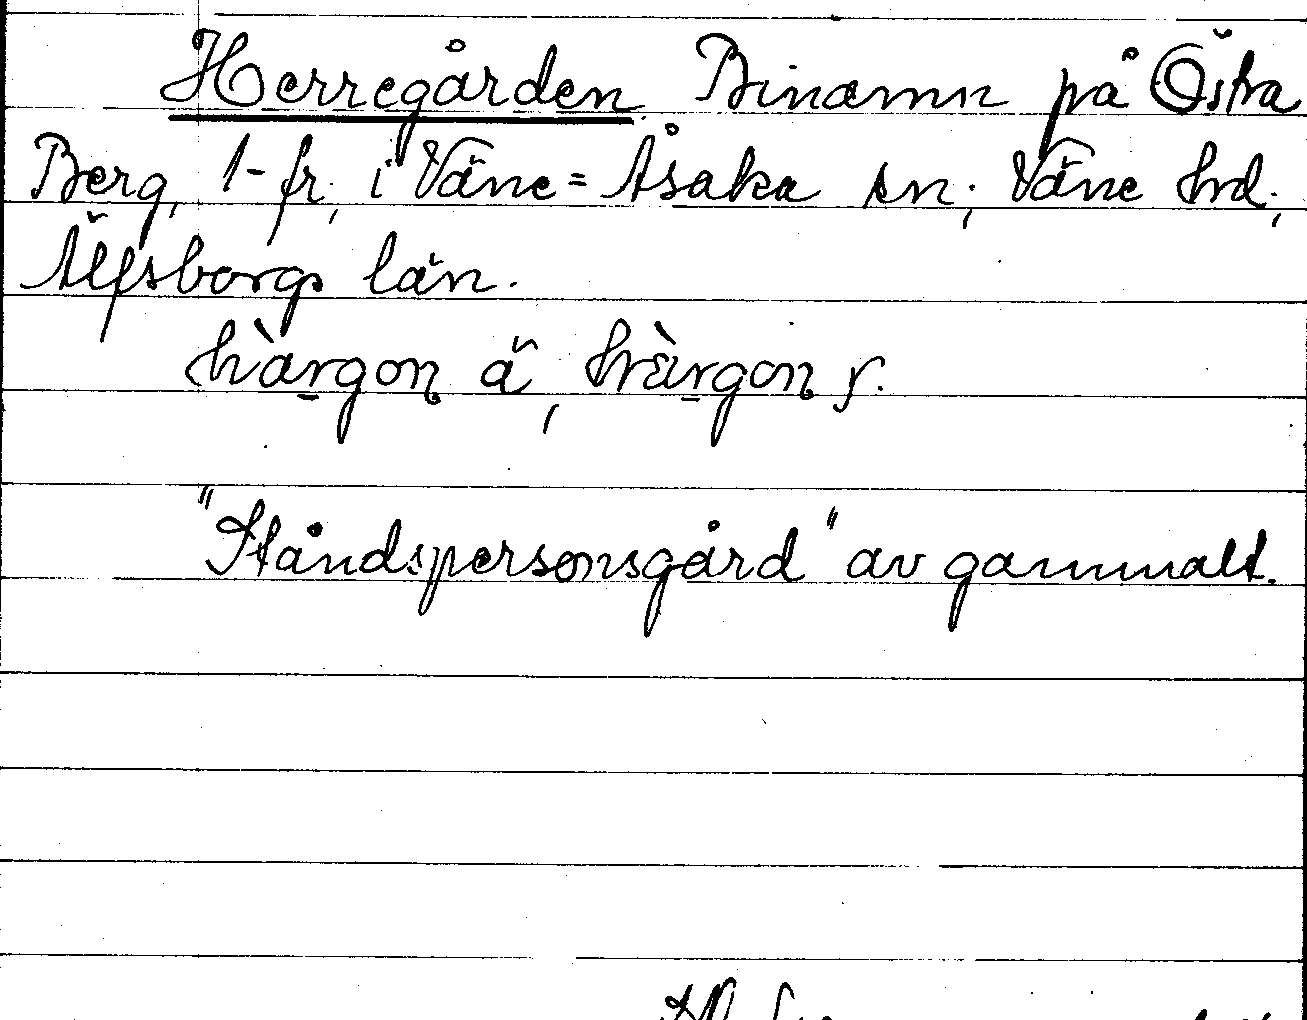 Herregården Binamn på Östra
Berg, 1-fr, i Väne=Åsaka sn; Väne hd;
Älfsborgs län.
hàrgon ä, hàrgon y.
"Ståndspersonsgård" av gammalt.